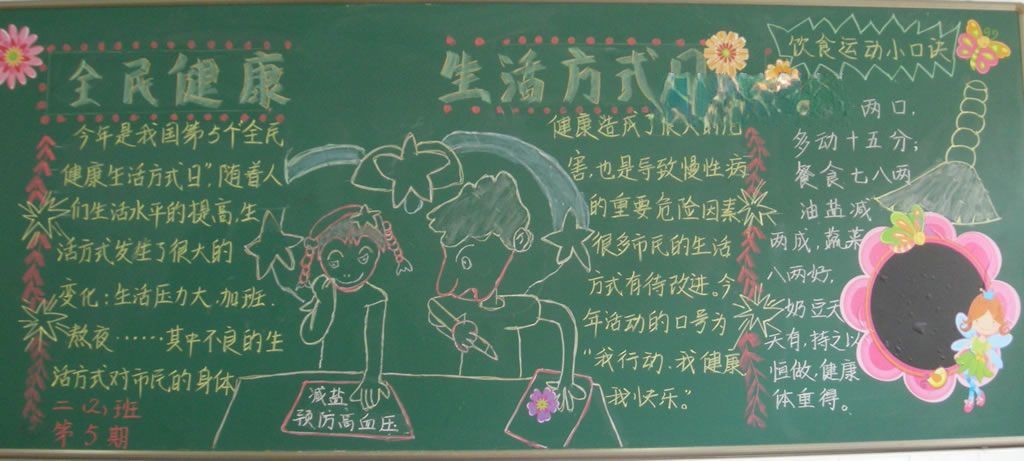 全民健康
生活方式日
今年是我国第5个全民
健康生活方式日”,随着人
们生活水平的提高,生
活方式发生了很大的
变化:生活压力大、加班、
熬夜……其中不良的生
活方式对市民的身体
二(2)班
第5期
减盐
预防高血压
健康造成了很大的危
害,也是导致慢性病
的重要危险因素
很多市民的生活
方式有待改进。今
年活动的口号为
“我行动、我健康
我快乐。”
饮食运动小口诀
两口,
多动十五分;
餐食七八两
油盐减
两成,蔬菜
八两好,
奶豆天
天有,持之以
恒做,健康
体重得。